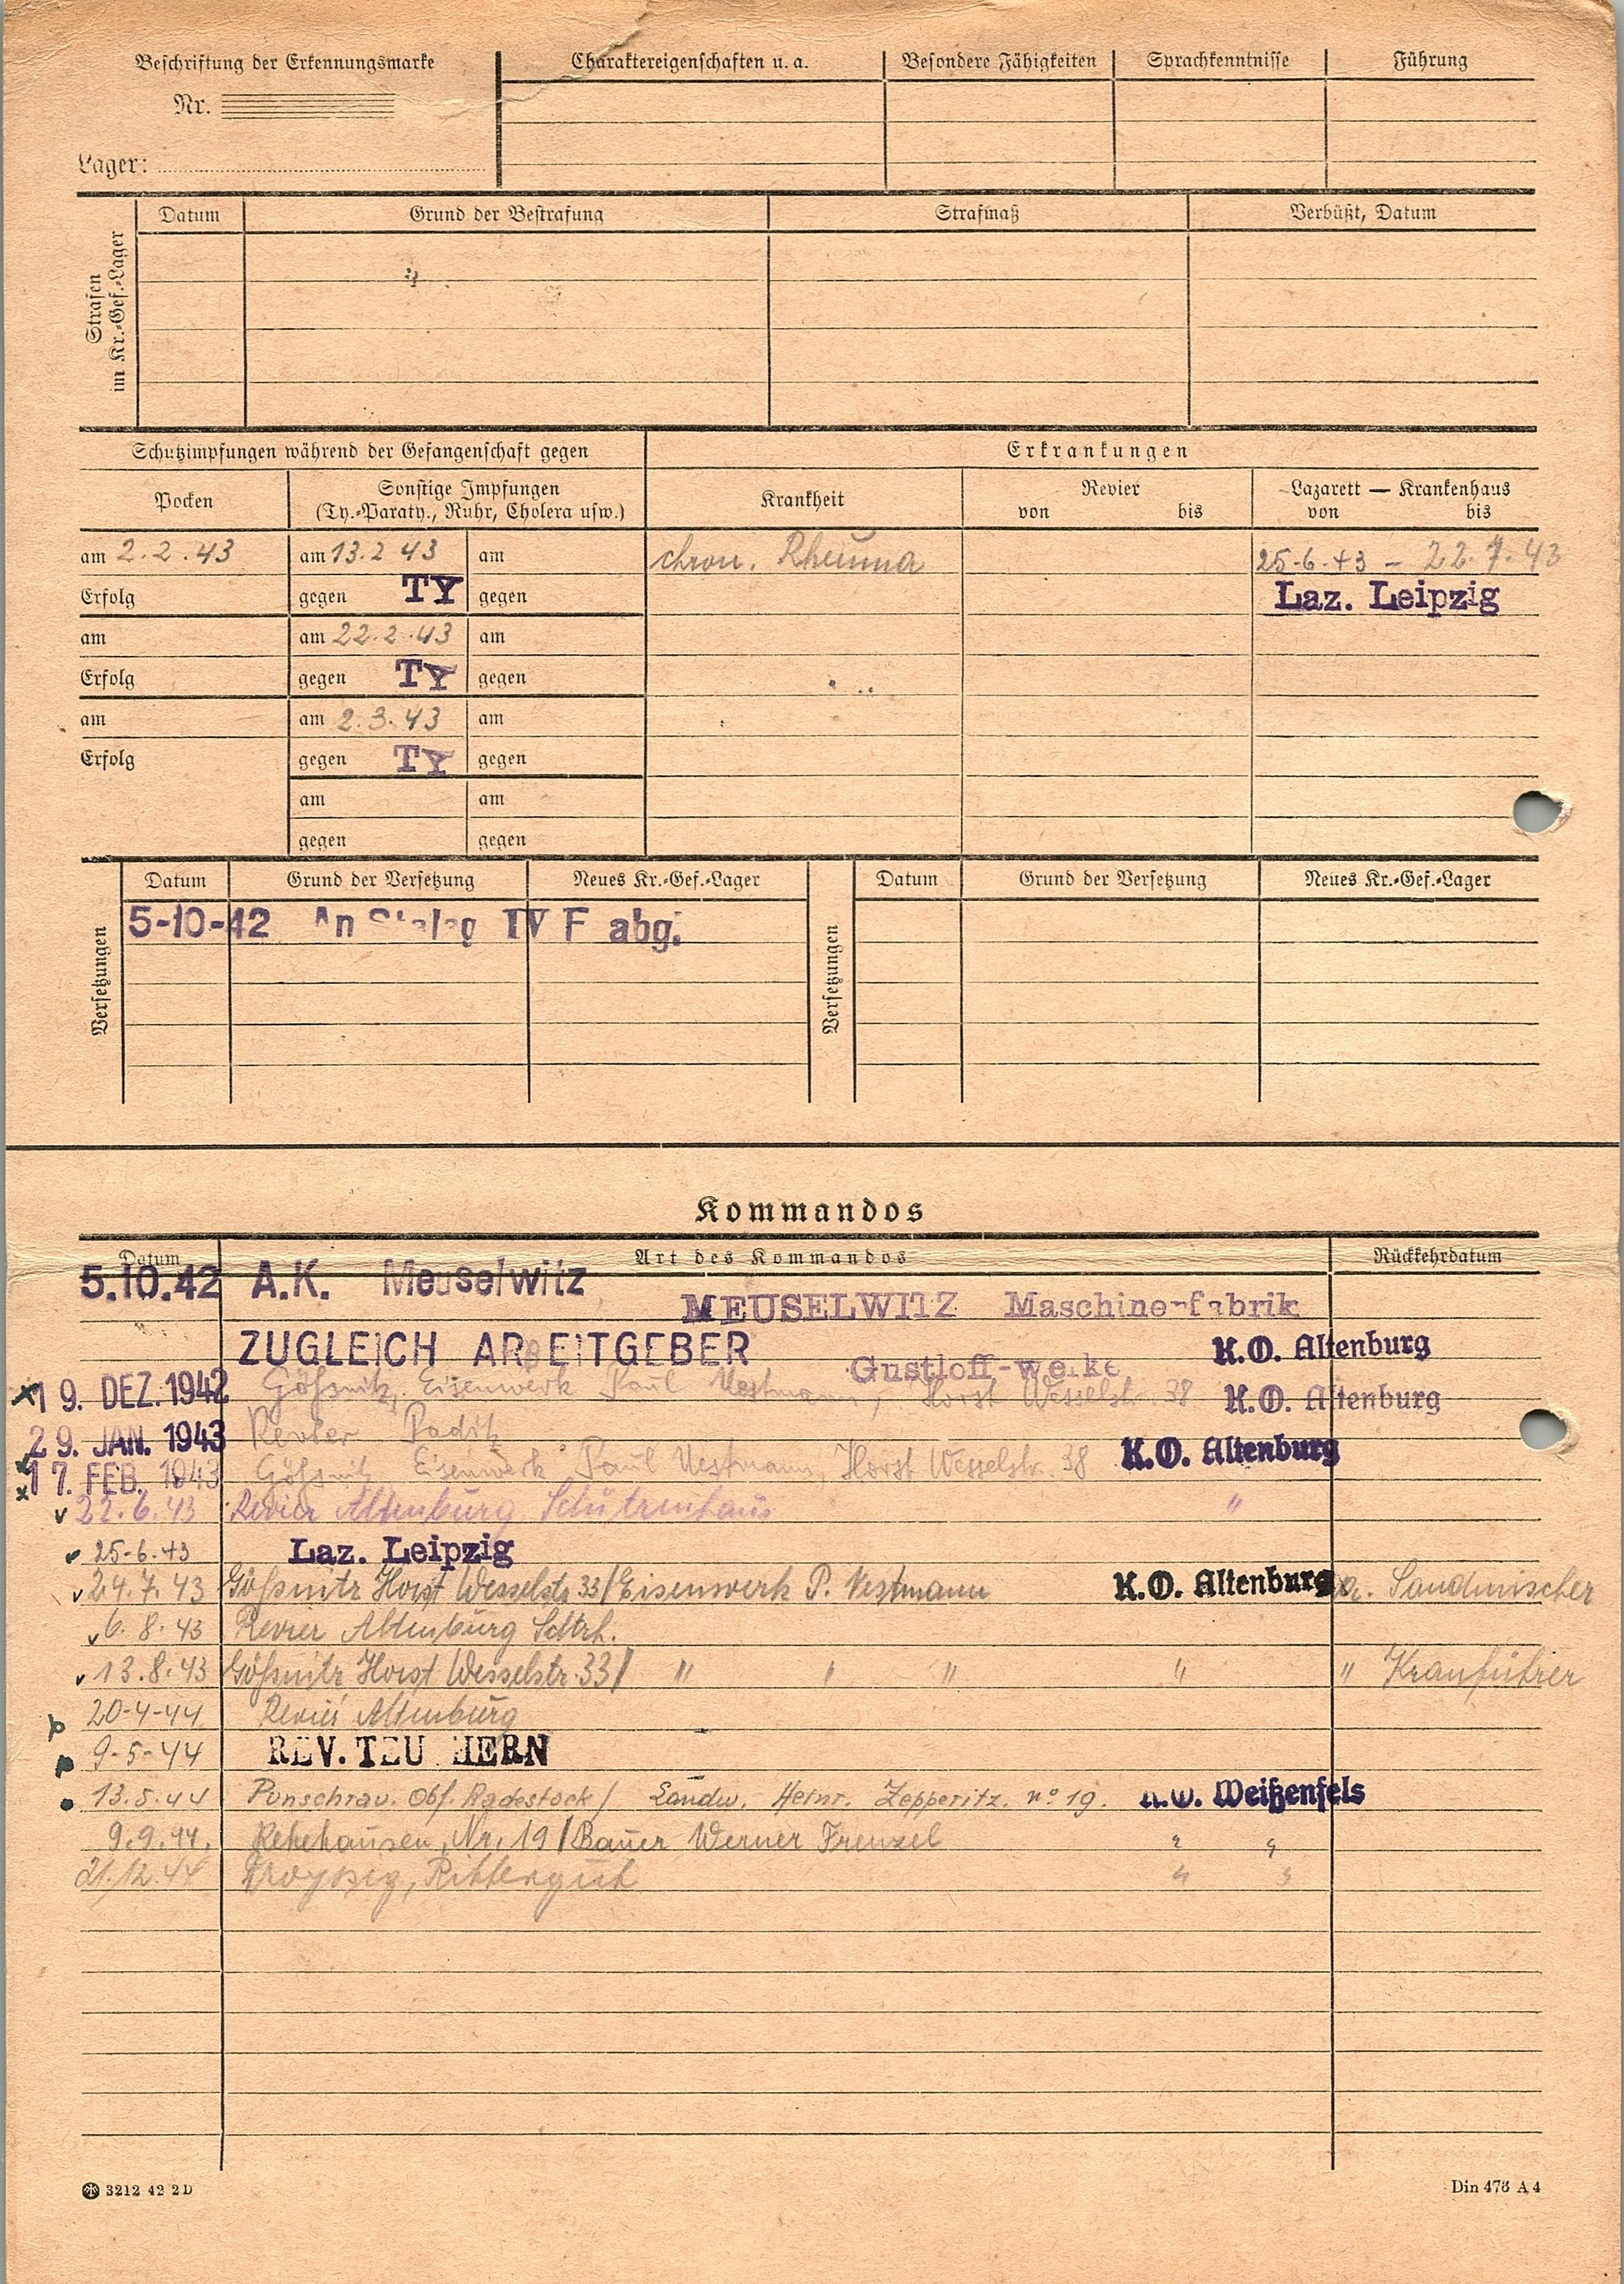 Beschriftung der Erkennungsmarke
Nr.
Lager:
Charaktereigenschaften u. a.
Besondere Fähigkeiten
Sprachkenntnisse
Führung
Strafen im Kr.-Gef.-Lager
Datum
Grund der Bestrafung
Strafmaß
Verbüßt, Datum
Schutzimpfungen während der Gefangenschaft gegen
Erkrankungen
Pocken
Sonstige Impfungen
(Ty.-Paraty., Ruhr, Cholera usw.)
Krankheit
Revier
von bis
Lazarett — Krankenhaus
von bis
am 2.2.43 am 13.2 43 am chron. Rheuma 25-6.43 - 22.7.43
Erfolg gegen TY gegen Laz. Leipzig
am am 22.2.43 am
Erfolg gegen TY gegen
am am 2.3.43 am
Erfolg gegen TY gegen
am am
gegen gegen
Versetzungen
Datum Grund der Versetzung Neues Kr.-Gef.-Lager
5-10-42 An Stalag IV F abg.
Versetzungen
Datum Grund der Versetzung Neues Kr.-Gef.-Lager
Kommandos
Datum Art des Kommandos Rückkehrdatum
5.10.42 A.K. Meuselwitz
MEUSELWITZ Maschinenfabrik
ZUGLEICH ARBEITGEBER K.O. Altenburg
Gustloff-werke
19. DEZ. 1942 Gößnitz, Eisenwerk Paul Vestmann, Horst Wesselstr. 38 K.O. Altenburg
29. JAN. 1943 Revier Paditz
17. FEB. 1943 Gößnitz Eisenwerk Paul Vestmann, Horst Wesselstr. 38 K.O. Altenburg
22.6.43 Revier Altenburg Schützenhaus "
25-6-43 Laz. Leipzig
24.7.43 Gößnitz Horst Wesselstr 33/Eisenwerk P. Vestmann K.O. Altenburg Sandmischer
6.8.43 Revier Altenburg Schtzh.
13.8.43 Gößnitz Horst Wesselstr. 33/ " " " " " Kranführer
20-4-44 Revier Altenburg
9-5-44 REV. TEUCHERN
13.5.44 Punschrau. Obf. Radestock/ Landw. Heinr. Zepperitz. no 19. K.O. Weißenfels
9.9.44. Rehehausen, Nr. 19/Bauer Werner Frenzel " "
21.12.44 Rittergut " "
3212 42 2 D
Din 476 A 4